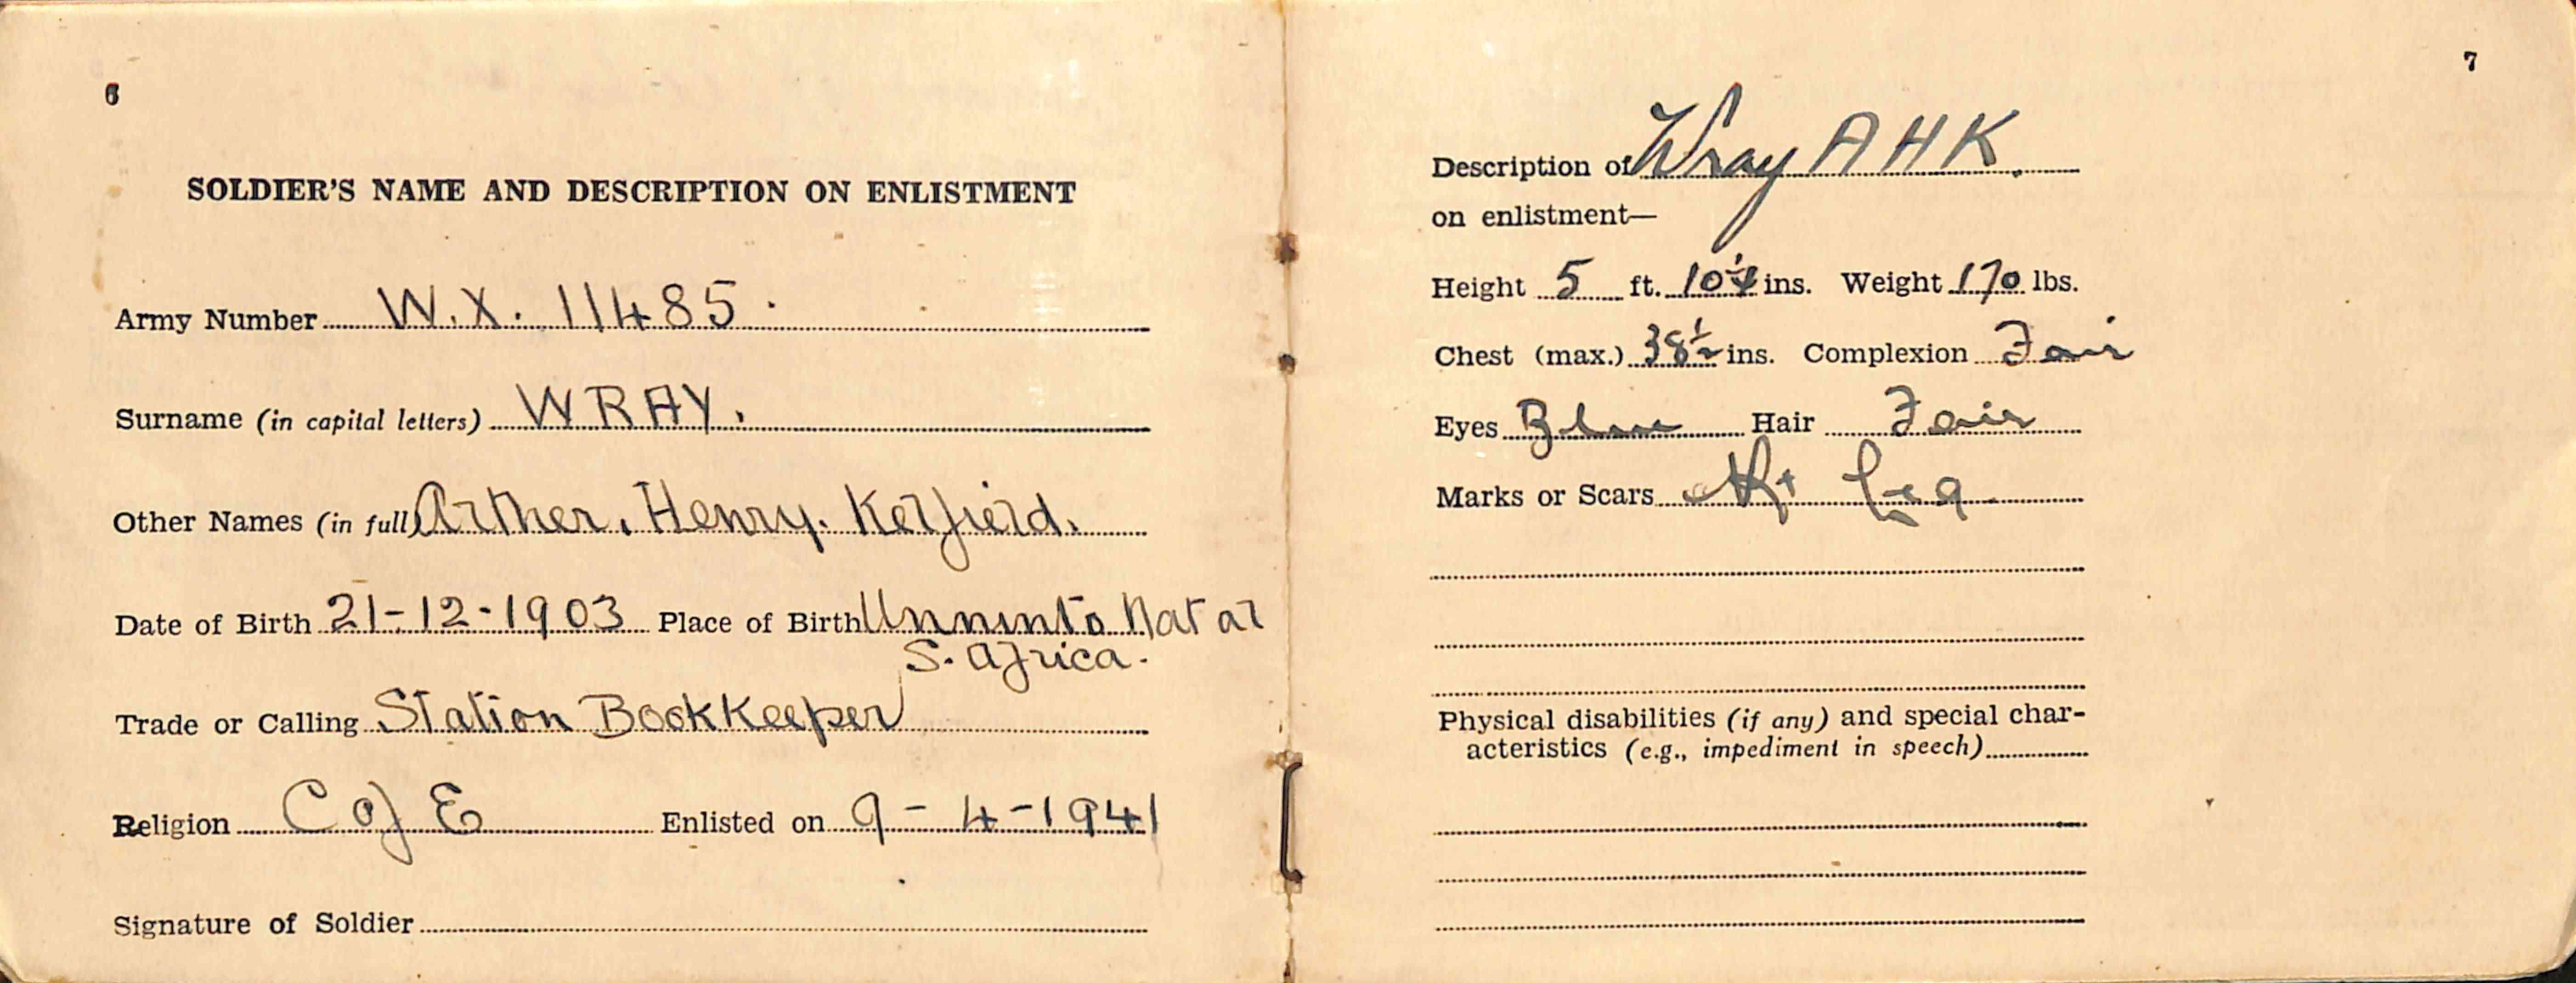 6
SOLDIER'S NAME AND DESCRIPTION ON ENLISTMENT
Army Number W.X. 11485.
Surname (in capital letters) WRAY.
Other Names (in full) Arther. Henry. Kelfield.
Date of Birth 21-12-1903 Place of Birth Natal
S. Africa.
Trade or Calling Station BookKeeper
Religion C of E Enlisted on 9-4-1941
Signature of Soldier
7
Description of Wray A H K.
on enlistment—
Height 5 ft. 10 1/4 ins. Weight 170 lbs.
Chest (max.) 38 1/2 ins. Complexion Fair
Eyes Blue Hair Fair
Marks or Scars Rt Leg
Physical disabilities (if any) and special char-
acteristics (e.g., impediment in speech)